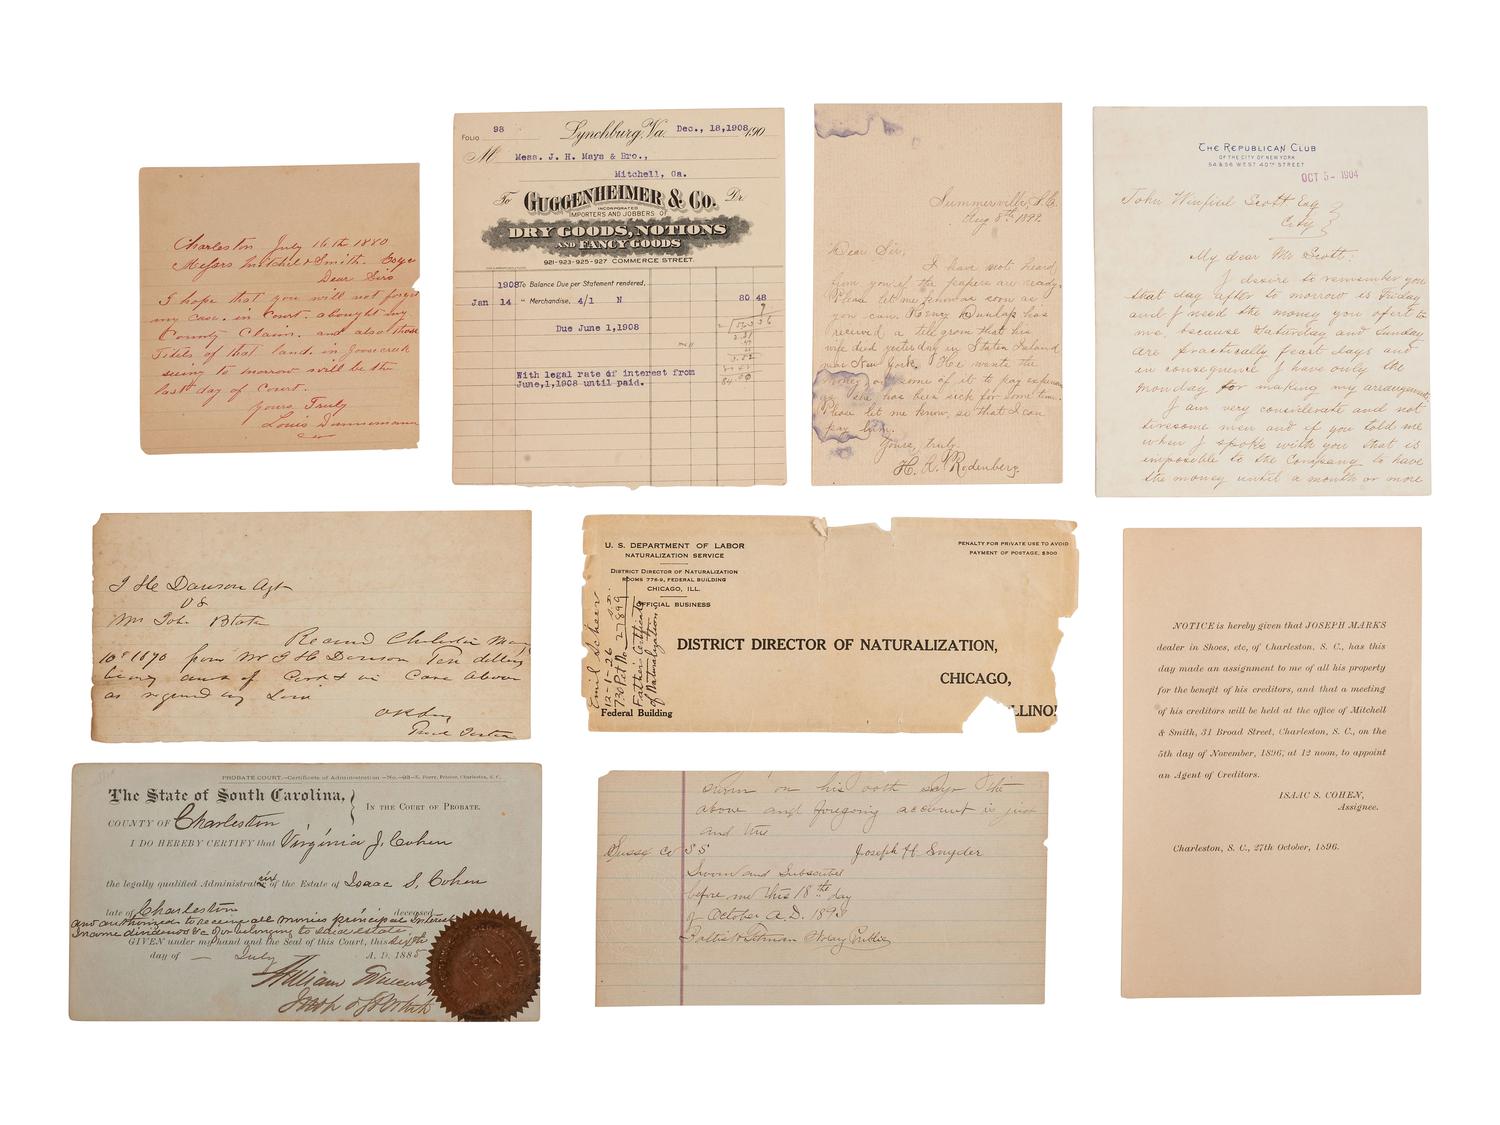 Charleston July 16th 1880.
Messrs Mitchel & Smith. Esqr
Dear Sirs
I hope that you will not forget
my case. in Court. abought my
County Claim. and also those
Titels of that land. in Goosecreek
seeing to morrow will be the
last day of Court.
Yours Truly
Louis Dunnemann
FOLIO 98
Lynchburg, Va. Dec., 18,1908, 190
M Mess. J. H. Mays & Bro.,
Mitchell, Ga.
To GUGGENHEIMER & CO. Dr.
INCORPORATED
IMPORTERS AND JOBBERS OF
DRY GOODS, NOTIONS
AND FANCY GOODS
921-923-925-927 COMMERCE STREET.
1908 To Balance Due per Statement rendered,
Jan 14 " Merchandise, 4/1 N 80 48
Due June 1,1908
With legal rate of interest from
June,1,1908 until paid.
84.00
Summerville, S.C.
Aug 8th 1892
Dear Sir,
I have not heard
from you if the papers are ready.
Please let me know as soon as
you can. Henry Dunlap has
received a tellgram that his
wife died yesterday in Staten Island
near New York. He wants the
money or some of it to pay expenses
as she has been sick for some time.
Please let me know, so that I can
pay him.
Yours, truly
H. A. Rodenberg.
THE REPUBLICAN CLUB
OF THE CITY OF NEW YORK
54 & 56 WEST 40TH STREET
OCT 5- 1904
John Winfield Scott Esq
City
My dear Mr Scott:
I desire to remember you
that day after to morrow is Friday
and I need the money you ofert to
me, because Saturday and Sunday
are practically feast days and
in consequence I have only the
Monday for making my arrangements
I am very considerate and not
tiresome men and if you told me
when I spoke with you that is
imposible to the Company to have
the money until a month or more
J H Dawson Agt
vs
Mr John
Recd Charleston May
10th 1870 from Mr J H Dawson Ten dollars
being amt of Cost in Case above
as required by Law
U. S. DEPARTMENT OF LABOR
NATURALIZATION SERVICE
DISTRICT DIRECTOR OF NATURALIZATION
ROOMS 776-9, FEDERAL BUILDING
CHICAGO, ILL.
OFFICIAL BUSINESS
PENALTY FOR PRIVATE USE TO AVOID
PAYMENT OF POSTAGE, $300
Emil Scheer
12-1-26
730 Pet No 27899
Father Certificate
of Naturalization
DISTRICT DIRECTOR OF NATURALIZATION,
CHICAGO,
Federal Building
LLINO
NOTICE is hereby given that JOSEPH MARKS
dealer in Shoes, etc, of Charleston, S. C., has this
day made an assignment to me of all his property
for the benefit of his creditors, and that a meeting
of his creditors will be held at the office of Mitchell
& Smith, 31 Broad Street, Charleston, S. C., on the
5th day of November, 1896, at 12 noon, to appoint
an Agent of Creditors.
ISAAC S. COHEN,
Assignee.
Charleston, S. C., 27th October, 1896.
PROBATE COURT.—Certificate of Administration
The State of South Carolina, } IN THE COURT OF PROBATE.
COUNTY OF Charleston
I DO HEREBY CERTIFY that Virginia J. Cohen
the legally qualified Administratrix of the Estate of Isaac S. Cohen
late of Charleston deceased
and authorized to receive all monies principal Interest
Income dividends &c &c belonging to said estate.
GIVEN under my hand and the Seal of this Court, this sixth
day of — July A. D. 1885
William
sworn on his oath says the
above and foregoing account is just
and true
Sussex Co SS Joseph H. Snyder
Sworn and Subscribed
before me this 18th day
of October A.D. 189
Notary Public